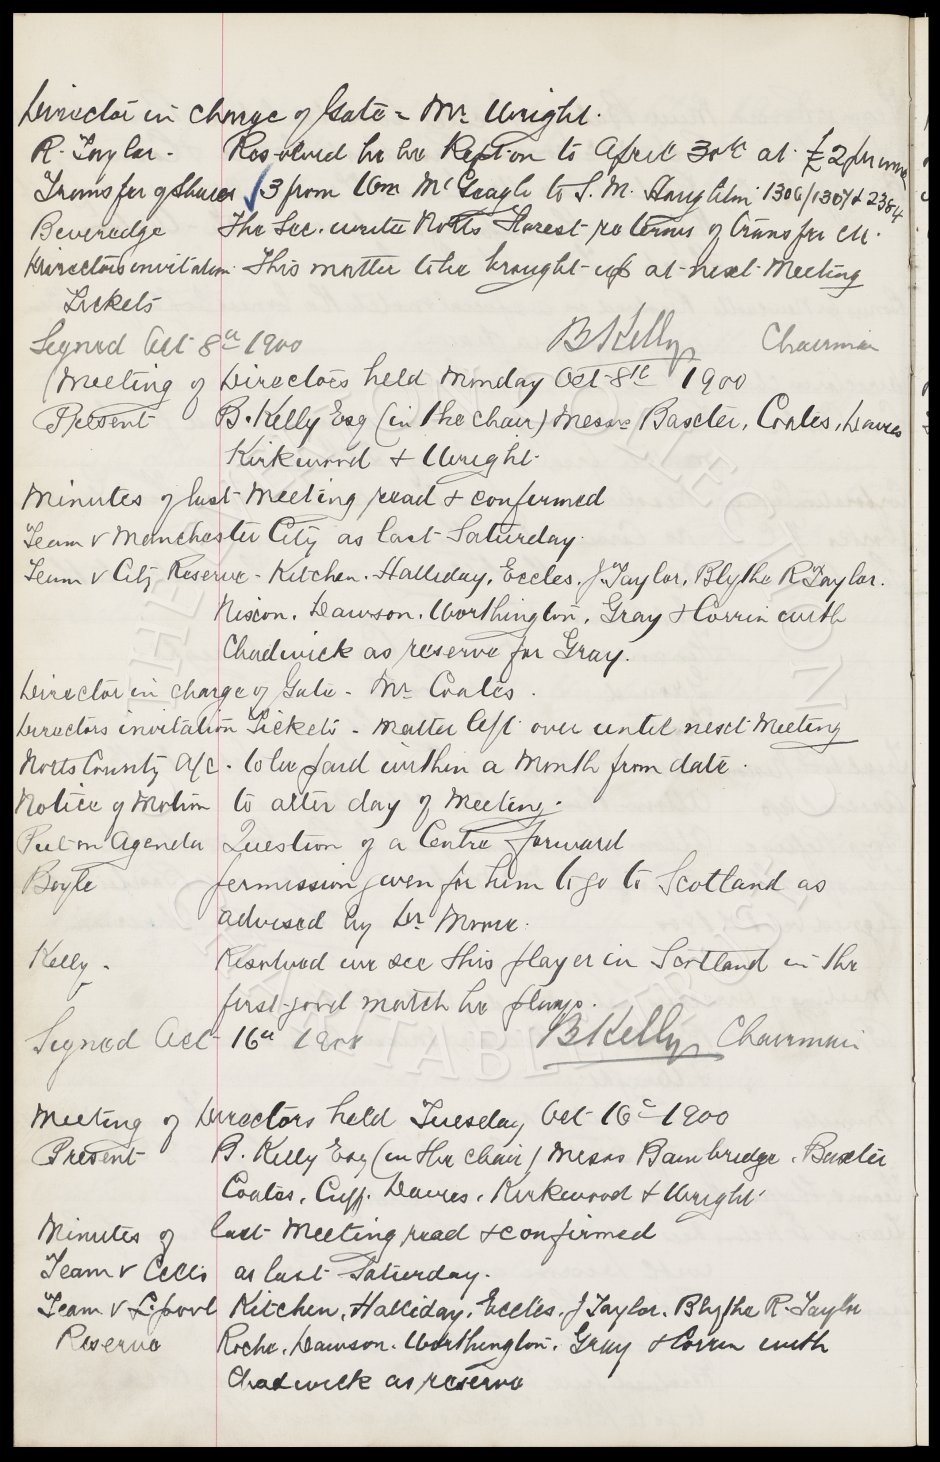 Director in charge of Gate = Mr Wright.
R. Taylor - Resolved he be kept on to April 30th at £2 per week
Transfer of Shares ✓ 3 from Wm McGeagh to S. M. Houghton 1306/1307 & 2384
Beveredge The Sec. write Notts Forest re terms of transfer etc.
Directors invitation This matter to be brought up at next Meeting
Tickets
Signed Oct 8th 1900 B Kelly Chairman
Meeting of Directors held Monday Oct 8th 1900
Present B. Kelly Esq (in the chair) Messrs Baxter, Coates, Davies
Kirkwood & Wright.
Minutes of last Meeting read & confirmed
Team v Manchester City as last Saturday.
Team v City Reserve - Kitchen. Halliday. Eccles. J. Taylor, Blythe R Taylor.
Nixon. Dawson. Worthington, Gray & Corrin with
Chadwick as reserve for Gray.
Director in charge of Gate - Mr Coates.
Directors invitation Tickets - Matter left over until next Meeting
Notts County A/c - to be paid within a month from date.
Notice of Motion to alter day of Meeting.
Put on Agenda Question of a Centre forward
Boyle permission given for him to go to Scotland as
advised by Dr Moore.
Kelly. Resolved we see this player in Scotland in the
first good match he plays.
Signed Oct 16th 1900 B Kelly Chairman
Meeting of Directors held Tuesday Oct 16th 1900
Present B. Kelly Esq (in the chair) Messrs Bainbridge, Baxter
Coates, Cuff. Davies, Kirkwood & Wright.
Minutes of last Meeting read & confirmed
Team v Celtic as last Saturday.
Team v L'pool Kitchen, Halliday, Eccles. J Taylor. Blythe R. Taylor
Reserve Roche, Dawson. Worthington. Gray & Corrin with
Chadwick as reserve
THE EVERTON COLLECTION
CHARITABLE TRUST